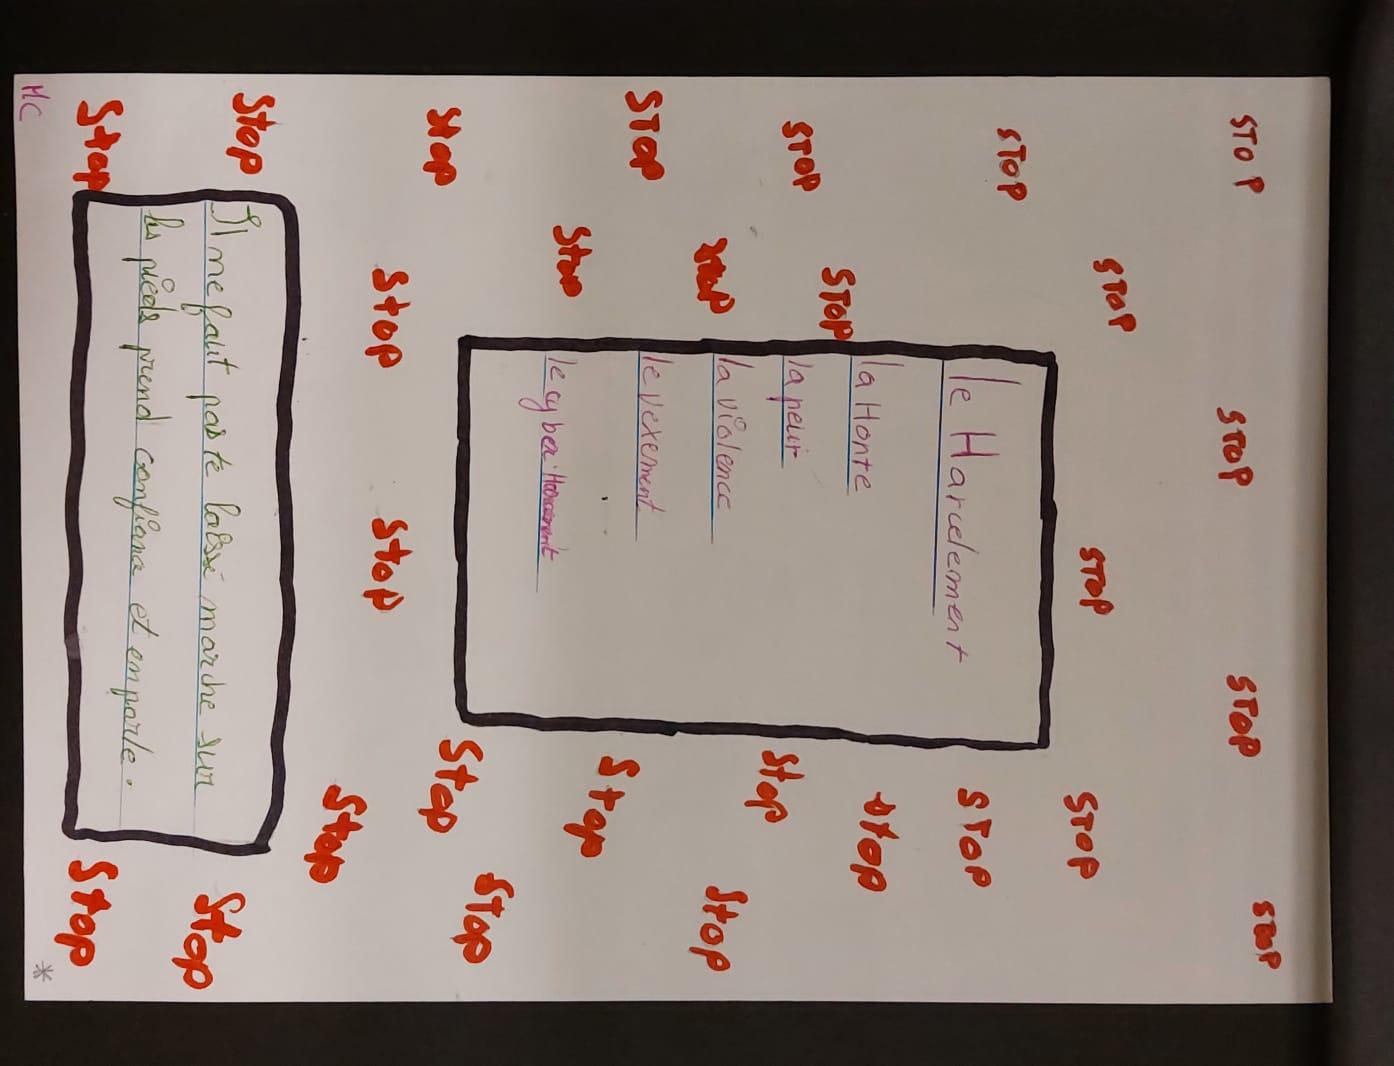 STOP STOP STOP STOP
STOP STOP STOP
STOP STOP
le Harcelement
la Honte
stop
STOP
STOP
la peur
Stop
STOP
la violence
Stop
STOP
le vexement
Stop
Stop
le cyber
Stop
stop
Stop
Stop
Stop
Stop
Stop
Stop
Il ne faut pas te laissé marche sur
les pieds prend confiance et emparle.
Stop
Stop
MC